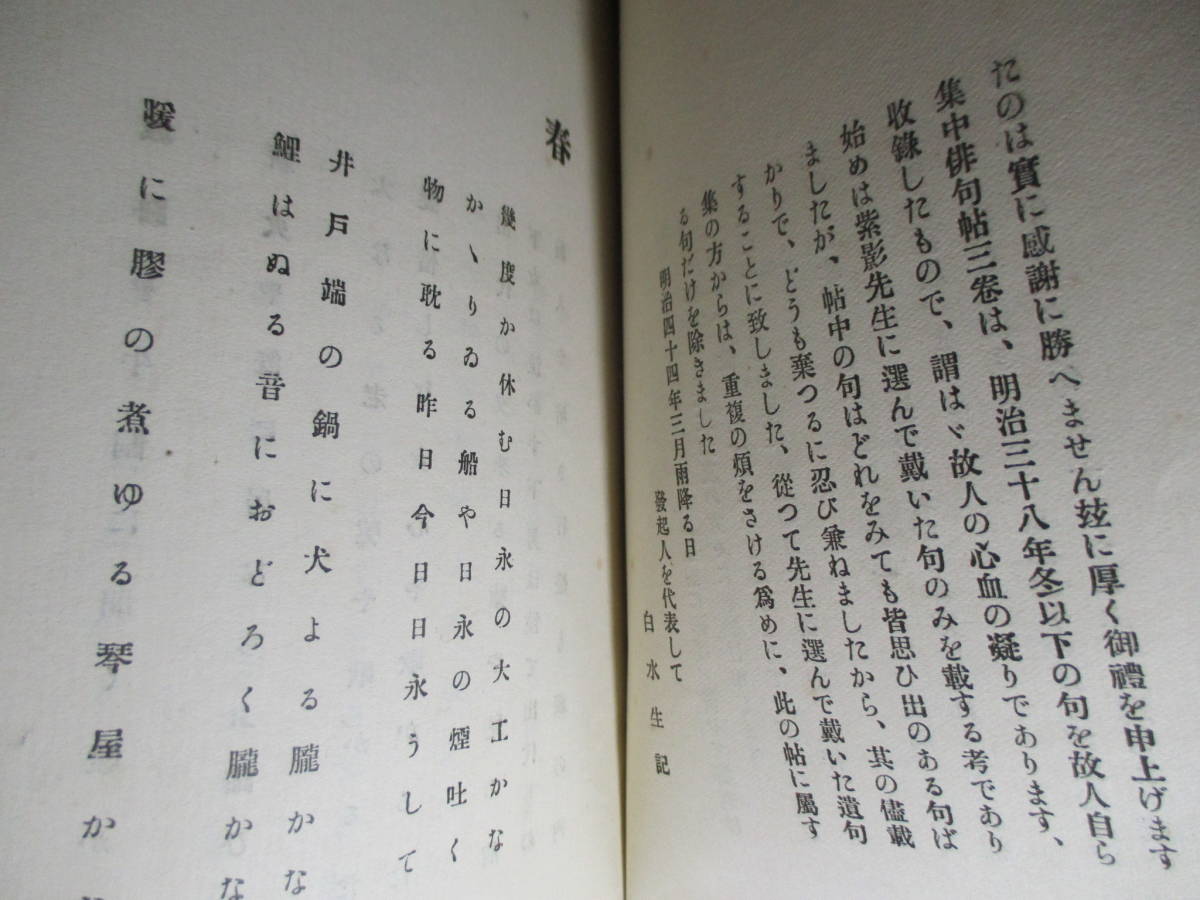 たのは實に感謝に勝へません玆に厚く御禮を申上げます
集中俳句帖三卷は、明治三十八年冬以下の句を故人自ら
收錄したもので、謂はゞ故人の心血の凝りであります、
始めは紫影先生に選んで戴いた句のみを載する考であり
ましたが、帖中の句はどれをみても皆思ひ出のある句ば
かりで、どうも棄つるに忍び兼ねましたから、其の儘載
することに致しました、從つて先生に選んで戴いた遺句
集の方からは、重複の煩をさける爲めに、此の帖に屬す
る句だけを除きました
明治四十四年三月雨降る日
發起人を代表して
白水生記
春
幾度か休む日永の大工かな
かゝりゐる船や日永の煙吐く
物に耽る昨日今日日永うして
井戸端の鍋に犬よる朧かな
鯉はぬる音におどろく朧かな
暖に膠の煮ゆる琴屋か